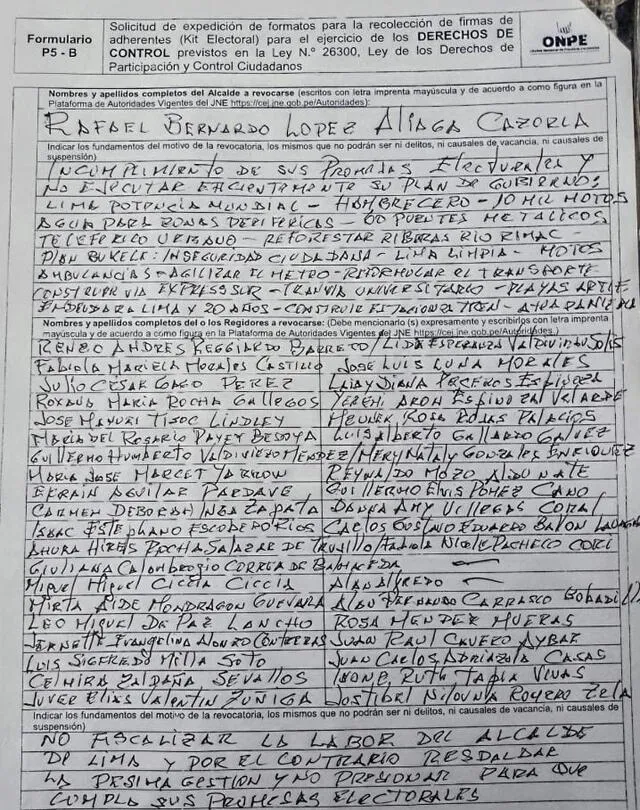 Formulario
P5 - B
Solicitud de expedición de formatos para la recolección de firmas de
adherentes (Kit Electoral) para el ejercicio de los DERECHOS DE
CONTROL previstos en la Ley N.° 26300, Ley de los Derechos de
Participación y Control Ciudadanos
ONPE
Nombres y apellidos completos del Alcalde a revocarse (escritos con letra imprenta mayúscula y de acuerdo a como figura en la
Plataforma de Autoridades Vigentes del JNE https://cej.jne.gob.pe/Autoridades):
RAFAEL BERNARDO LOPEZ ALIAGA CAZORLA
Indicar los fundamentos del motivo de la revocatoria, los mismos que no podrán ser ni delitos, ni causales de vacancia, ni causales de
suspensión)
INCUMPLIMIENTO DE SUS PROMESAS ELECTORALES Y
NO EJECUTAR EFICIENTEMENTE SU PLAN DE GOBIERNO:
LIMA POTENCIA MUNDIAL - HAMBRE CERO - 10 MIL MOTOS
AGUA PARA ZONAS PERIFERICAS - 60 PUENTES METALICOS
TELEFERICO URBANO - REFORESTAR RIBERAS RIO RIMAC -
PLAN BUKELE: INSEGURIDAD CIUDADANA - LIMA LIMPIA - MOTOS
AMBULANCIAS - AGILIZAR EL METRO - REFORMULAR EL TRANSPORTE
CONSTRUIR VIA EXPRESS SUR - TRANVIA UNIVERSITARIO - PLAYAS
ENDEUDARA LIMA X 20 AÑOS - CONSTRUIR ESTACIONES TREN -
Nombres y apellidos completos del o los Regidores a revocarse: (Debe mencionarlo (s) expresamente y escribirlos con letra imprenta
mayúscula y de acuerdo a como figura en la Plataforma de Autoridades Vigentes del JNE https://cej.jne.gob.pe/Autoridades.)
RENZO ANDRES REGGIARDO BARRETO / LIDA ESPERANZA VALDIVIA SOLIS
FABIOLA MARIELA MORALES CASTILLO JOSE LUIS LUNA MORALES
JULIO CESAR GAGO PEREZ LEIDY DIANA PECEROS ESPINOZA
ROXANA MARIA ROCHA GALLEGOS YEREMI ARON ESPINOZA VELARDE
JOSE MANUEL TISOC LINDLEY ROSA ROJAS PALACIOS
MARIA DEL ROSARIO PAYET BEDOYA LUIS ALBERTO GALLARZO GALVEZ
GUILLERMO HUMBERTO VALDIVIEZO MENDEZ / MERY NATALY GONZALES ENRIQUEZ
MARIA JOSE MARCET YARROW REYNALDO MOZO
EFRAIN AGUILAR PARDAVE GUILLERMO ELVIS POMEZ CANO
CARMEN DEBORAH INGA ZAPATA DANNA AMY VILLEGAS CORAL
ISAAC ESTEPHANO ESCOBEDO RIOS CARLOS GUSTAVO EDUARDO BAYON
ROCHA SALAZAR DE TRUJILLO / FABIOLA NICOLE PACHECO CORI
GIULIANA CALAMBROGIO CORREA DE
MIGUEL MIGUEL CICCIA CICCIA ALAN ALFREDO
MIRTA AIDE MONDRAGON GUEVARA ALAN FERNANDO CARRASCO BOBADILLA
LEO MIGUEL DE PAZ LANCHO ROSA MENDEZ MUERAS
JERNETTE EVANGELINA ALONZO CONTRERAS JUAN RAUL CAVERO AYBAR
LUIS SIGFREDO MILLA SOTO JUAN CARLOS ADRIAZOLA CASAS
CELMIRA ZALDAÑA SEVALLOS IVONE RUTH TAPIA VIVAS
JUVER ELIAS VALENTIN ZUÑIGA ROYERO
Indicar los fundamentos del motivo de la revocatoria, los mismos que no podrán ser ni delitos, ni causales de vacancia, ni causales de
suspensión)
NO FISCALIZAR LA LABOR DEL ALCALDE
DE LIMA Y POR EL CONTRARIO RESPALDAR
LA PESIMA GESTION Y NO PRESIONAR PARA QUE
CUMPLA SUS PROMESAS ELECTORALES